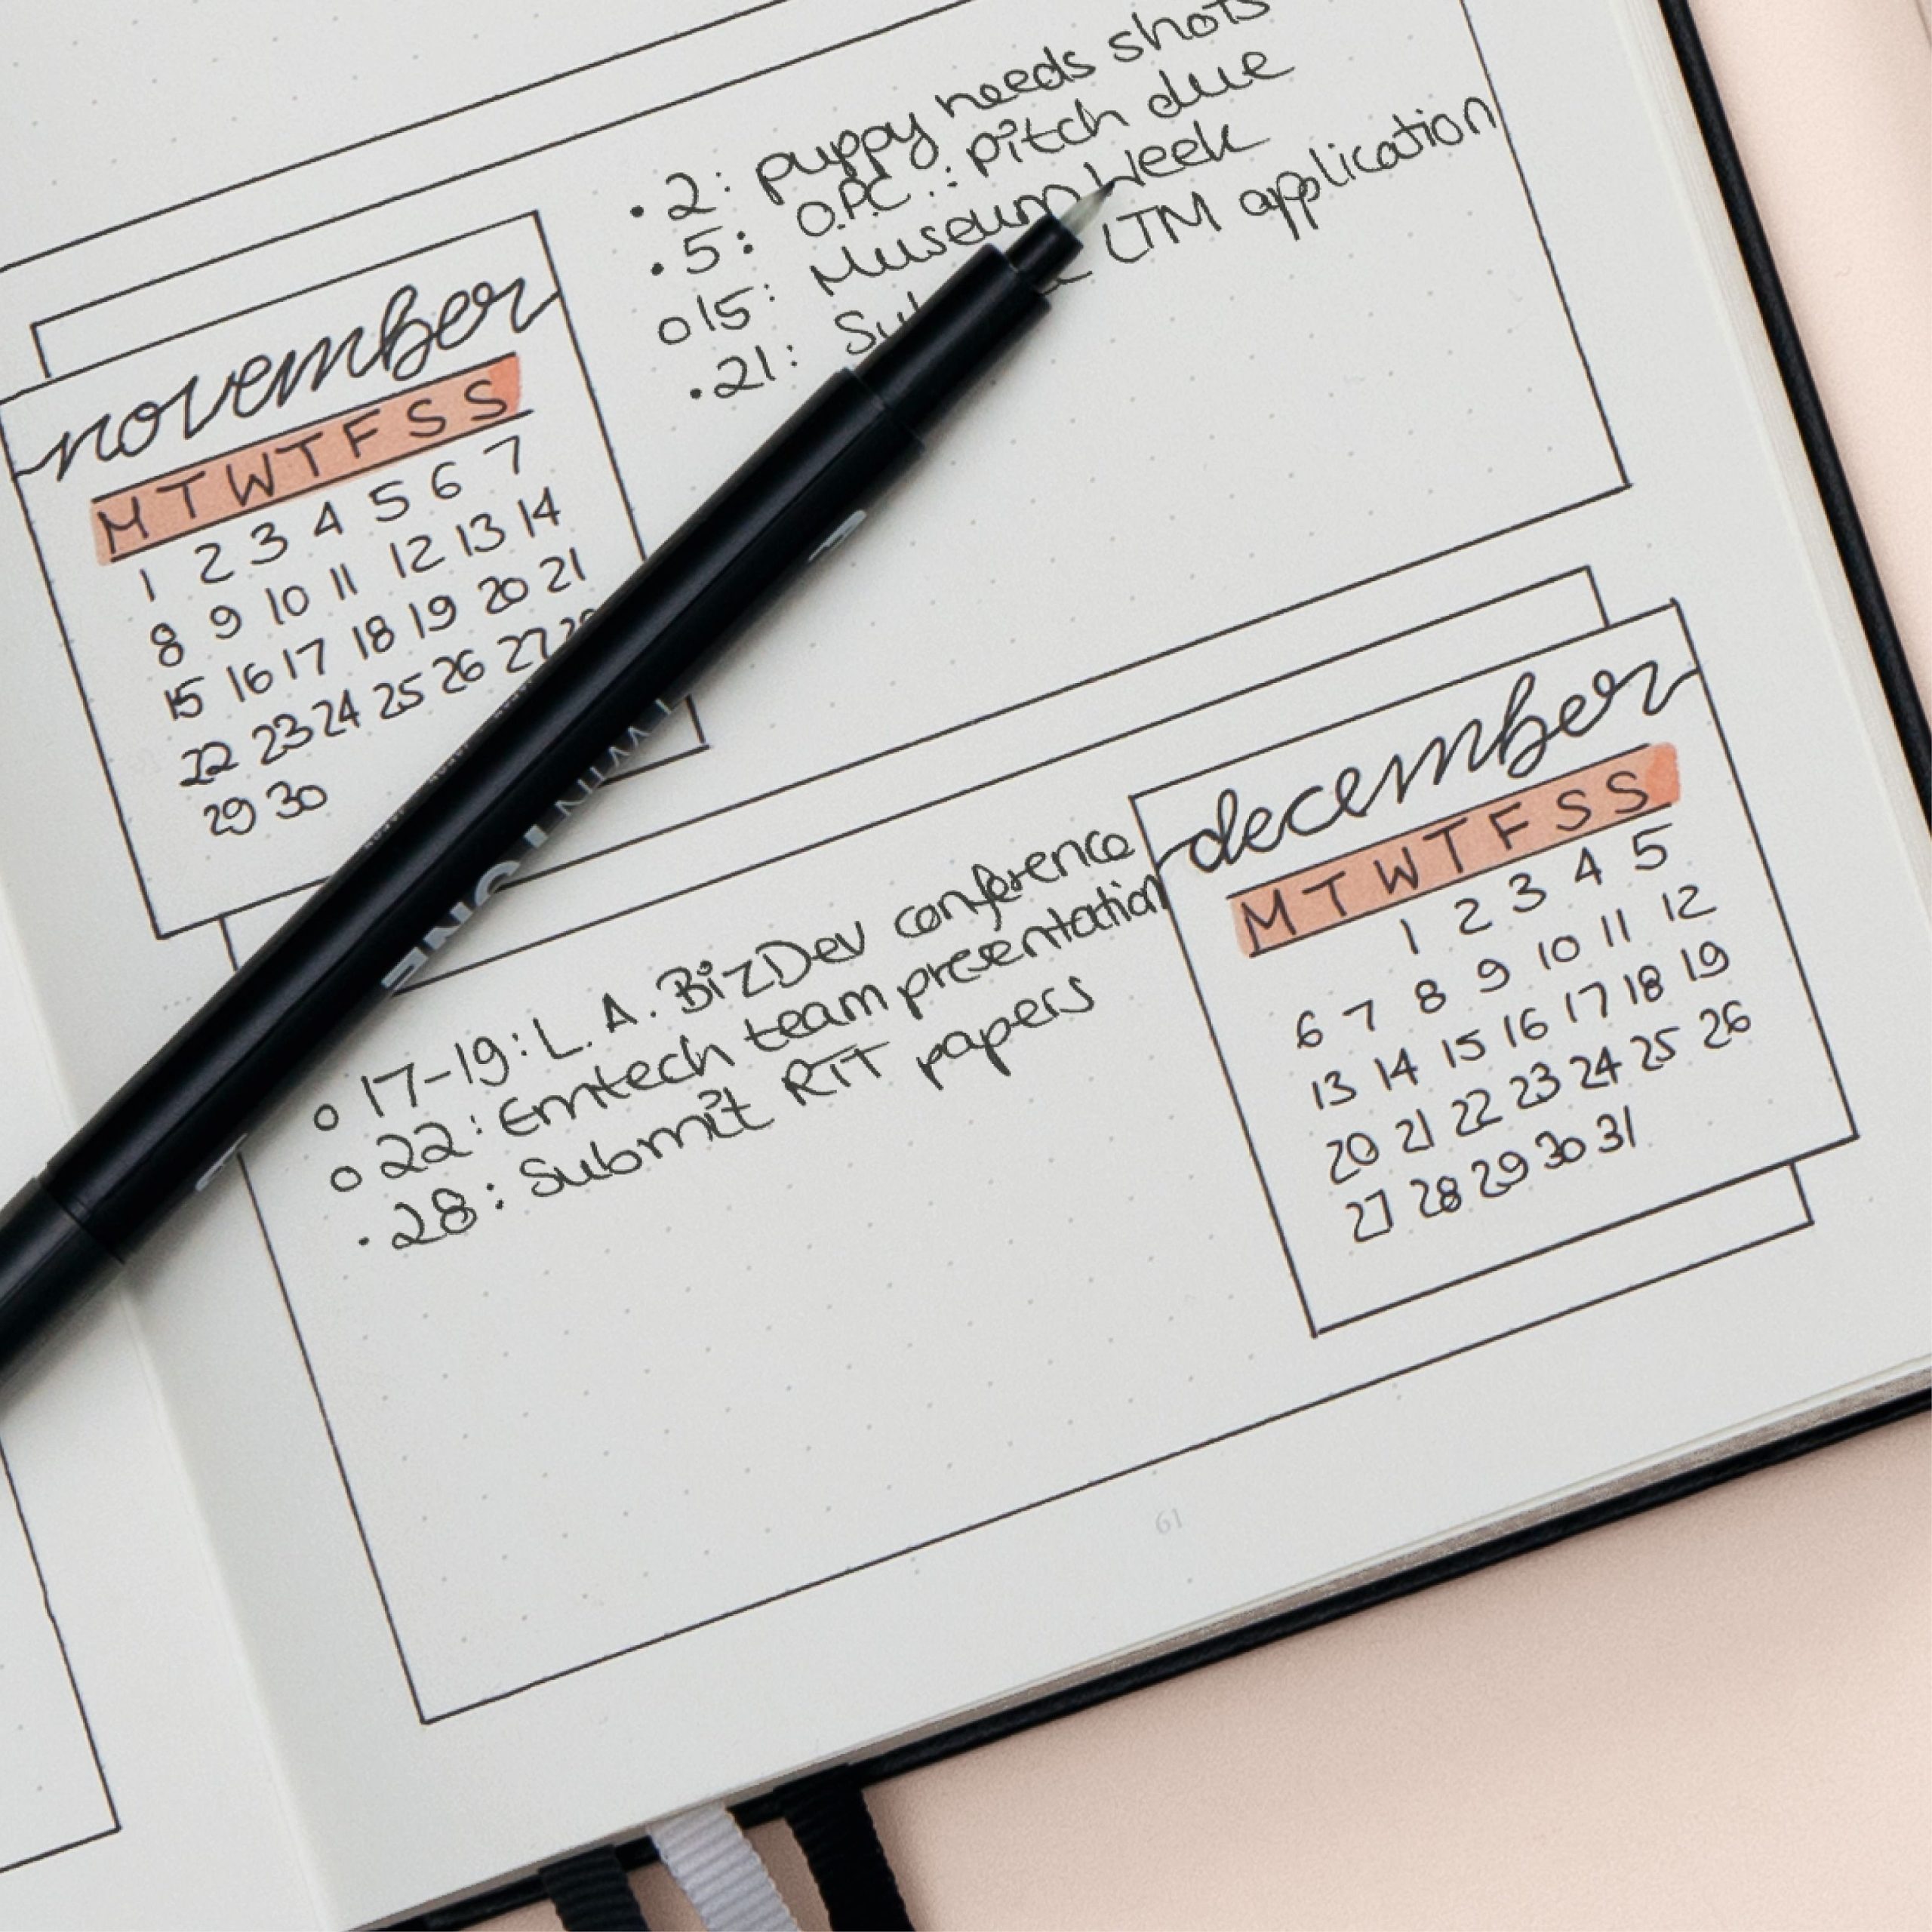 • 2: puppy needs shots
• 5: O.P.C.: pitch due
o 15: Museum Week
• 21: LTM application
november
M T W T F S S
1 2 3 4 5 6 7
8 9 10 11 12 13 14
15 16 17 18 19 20 21
22 23 24 25 26 27
29 30
TWIN TONE
december
M T W T F S S
1 2 3 4 5
6 7 8 9 10 11 12
13 14 15 16 17 18 19
20 21 22 23 24 25 26
27 28 29 30 31
o 17-19: L.A. BizDev conference
o 22: Emtech team presentation
• 28: Submit RTT papers
61